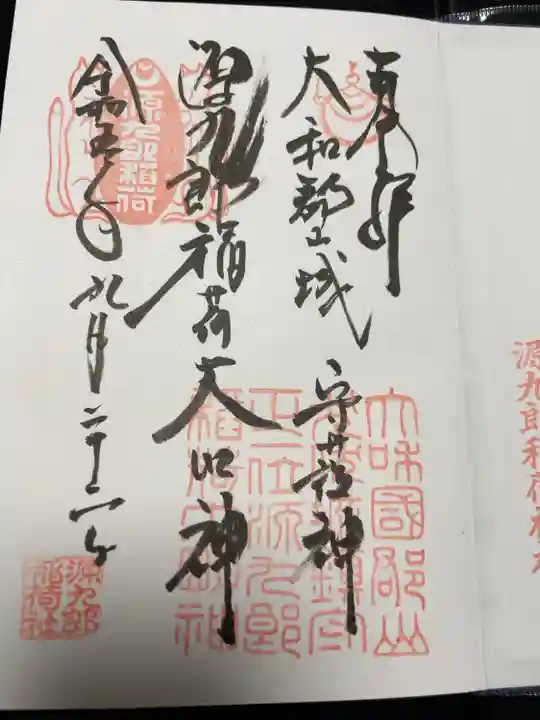 奉拝
大和郡山城 守護神
源九郎稲荷大明神
令和五年九月二十二日
源九郎稲荷
大和國郡山
正一位源九郎
稲荷大明神
源九郎
稲荷社
源九郎稲荷神社